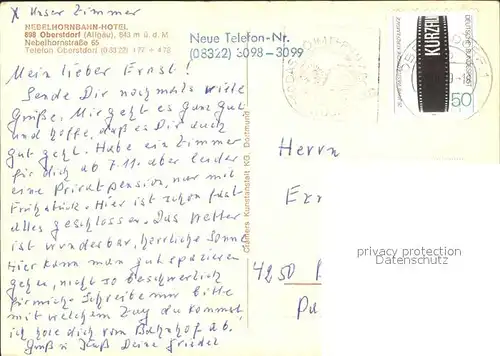 x Unser Zimmer
NEBELHORNBAHN-HOTEL
898 Oberstdorf (Allgäu), 843 m ü. d. M
Nebelhornstraße 65
Telefon Oberstdorf (08322) 177 + 478
Neue Telefon-Nr.
(08322) 3098-3099
Mein lieber Ernst!
Sende Dir nochmals viele
Grüße. Mir geht es ganz gut
und hoffe, daß es Dir auch
gut geht. Habe ein Zimmer
für dich ab 7.11. aber leider
eine Privatpension, nur mit
Frühstück. Hier ist schon fast
alles geschlossen. Das Wetter
ist wunderbar, herrliche Sonne
Hier kann man gut spazieren
gehen, nicht so beschwerlich
für mich. Schreibe mir bitte
mit welchem Zug du kommst,
ich hole dich vom Bahnhof ab.
Gruß u. Kuß Deine Friedel
Cramers Kunstanstalt KG. Dortmund
DEUTSCHE BUNDESPOST
50
Herrn
Er
4250
privacy protection
Datenschutz